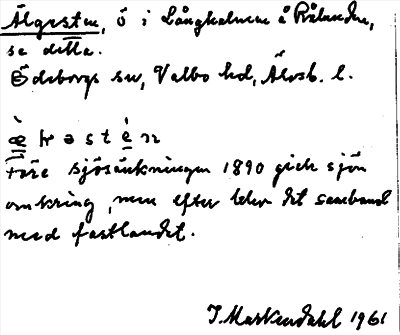 Älgesten, ö i Långhalmen å Rålanden,
se detta.
Ödeborgs sn, Valbo hd, Älvsb. l.
Före sjösänkningen 1890 gick sjön
omkring, men efter blev det samband
med fastlandet.
J. Markendahl 1961